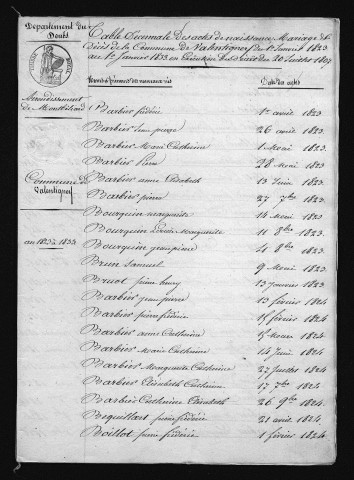 Département du
Doubs
Table Décennale Des actes de naissance, Mariage & de
Décès de la Commune de Valentigney du 1er Janvier 1823
au 1er Janvier 1833 en Exécution du Décret du 20 Juillet 1807
Noms & Prénoms des nouveaux nés
Date des actes
Arrondissement
de Montbéliard
Commune de
Valentigney
an 1823 à 1833
Barbier frédéric 1er avril 1823
Barbier jean pierre 26 avril 1823
Barbier Marie Catherine 1 Mai 1823
Barbier 28 Mai 1823
Barbier anne Elisabeth 13 Juin 1823
Barbier pierre 27 7bre 1823
Bourquin marguerite 14 8bre 1823
Bourquin Marguerite 11 8bre 1823
Bourquin jean pierre 41 8bre 1823
Brun Samuel 9 Mai 1823
Bruot pierre henry 13 janvier 1823
Barbier jean pierre 13 février 1824
Barbier pierre frédéric 15 février 1824
Barbier anne Catherine 15 Mars 1824
Barbier Marie Catherine 14 Juin 1824
Barbier Marguerite Catherine 27 Juillet 1824
Barbier Elisabeth Catherine 17 7bre 1824
Barbier Catherine Elisabeth 26 9bre 1824
Bequillart pierre frédéric 21 avril 1824
Boillot pierre frédéric 1 février 1824